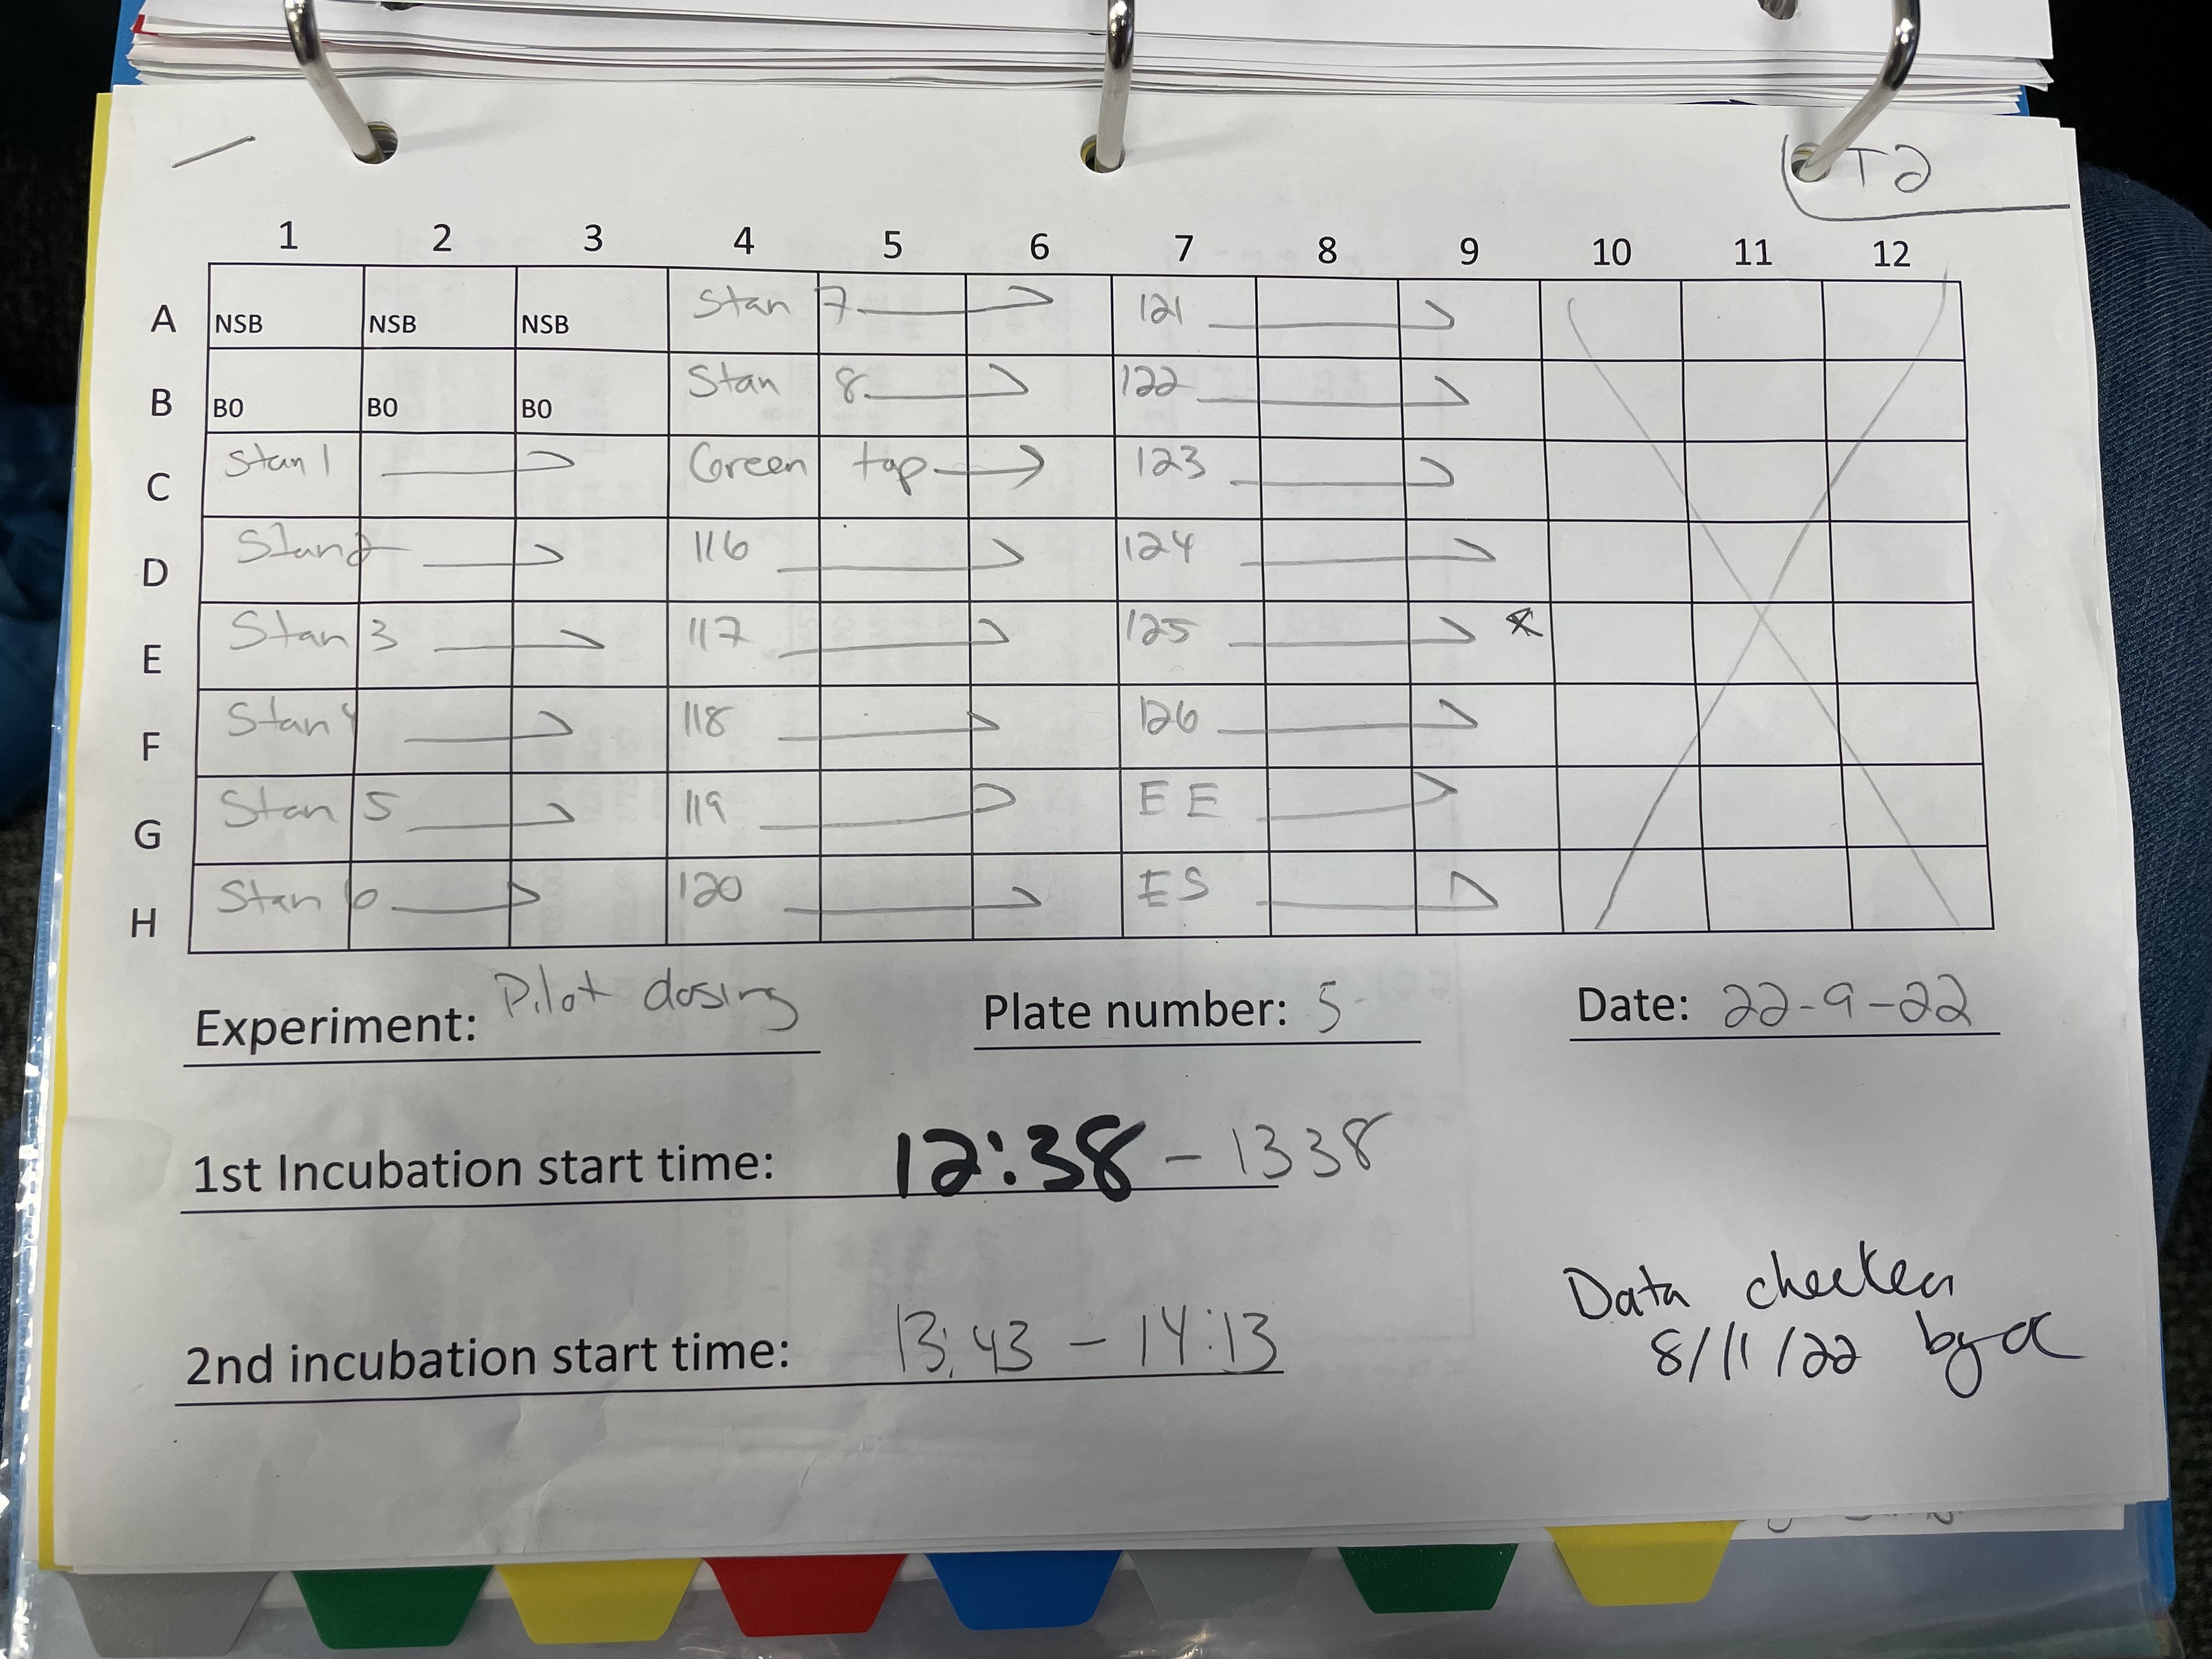 T2
1 2 3 4 5 6 7 8 9 10 11 12
A NSB NSB NSB Stan 7 121
B B0 B0 B0 Stan 8 122
C Stan 1 Green top 123
D Stan 2 116 124
E Stan 3 117 125 *
F Stan 4 118 126
G Stan 5 119 EE
H Stan 6 120 ES
Experiment: Pilot dosing Plate number: 5 Date: 22-9-22
1st Incubation start time: 12:38 - 1338
2nd incubation start time: 13:43 - 14:13
Data checked
8/11/22 by